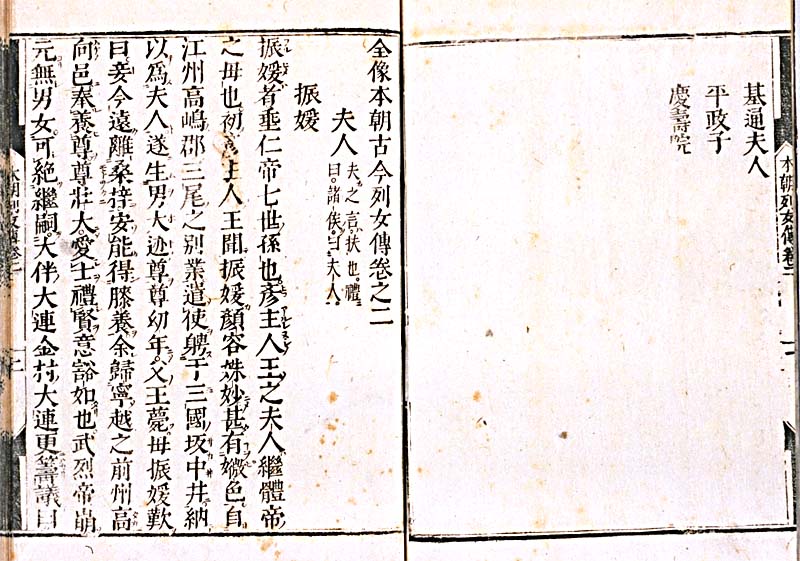 基通夫人
平政子
慶壽院
本朝列女傳卷二
全像本朝古今列女傳卷之二
夫人
夫之言扶也。禮
曰。諸侯曰夫人。
振媛
振媛者垂仁帝七世孫也彥主人王之夫人繼體帝
之母也初彥主人王聞振媛顏容姝妙甚有媺色自
江州高嶋郡三尾之別業遣使聘于三國坂中井納
以爲夫人遂生男大迹尊尊幼年。父王薨母振媛歎
曰妾今遠離桑梓安能得膝養余歸寧越之前州高
向邑奉養尊尊壯大。愛士禮賢意豁如也武烈帝崩
元無男女。可絕繼嗣。大伴大連金村大連更籌議曰
本朝列女傳卷二